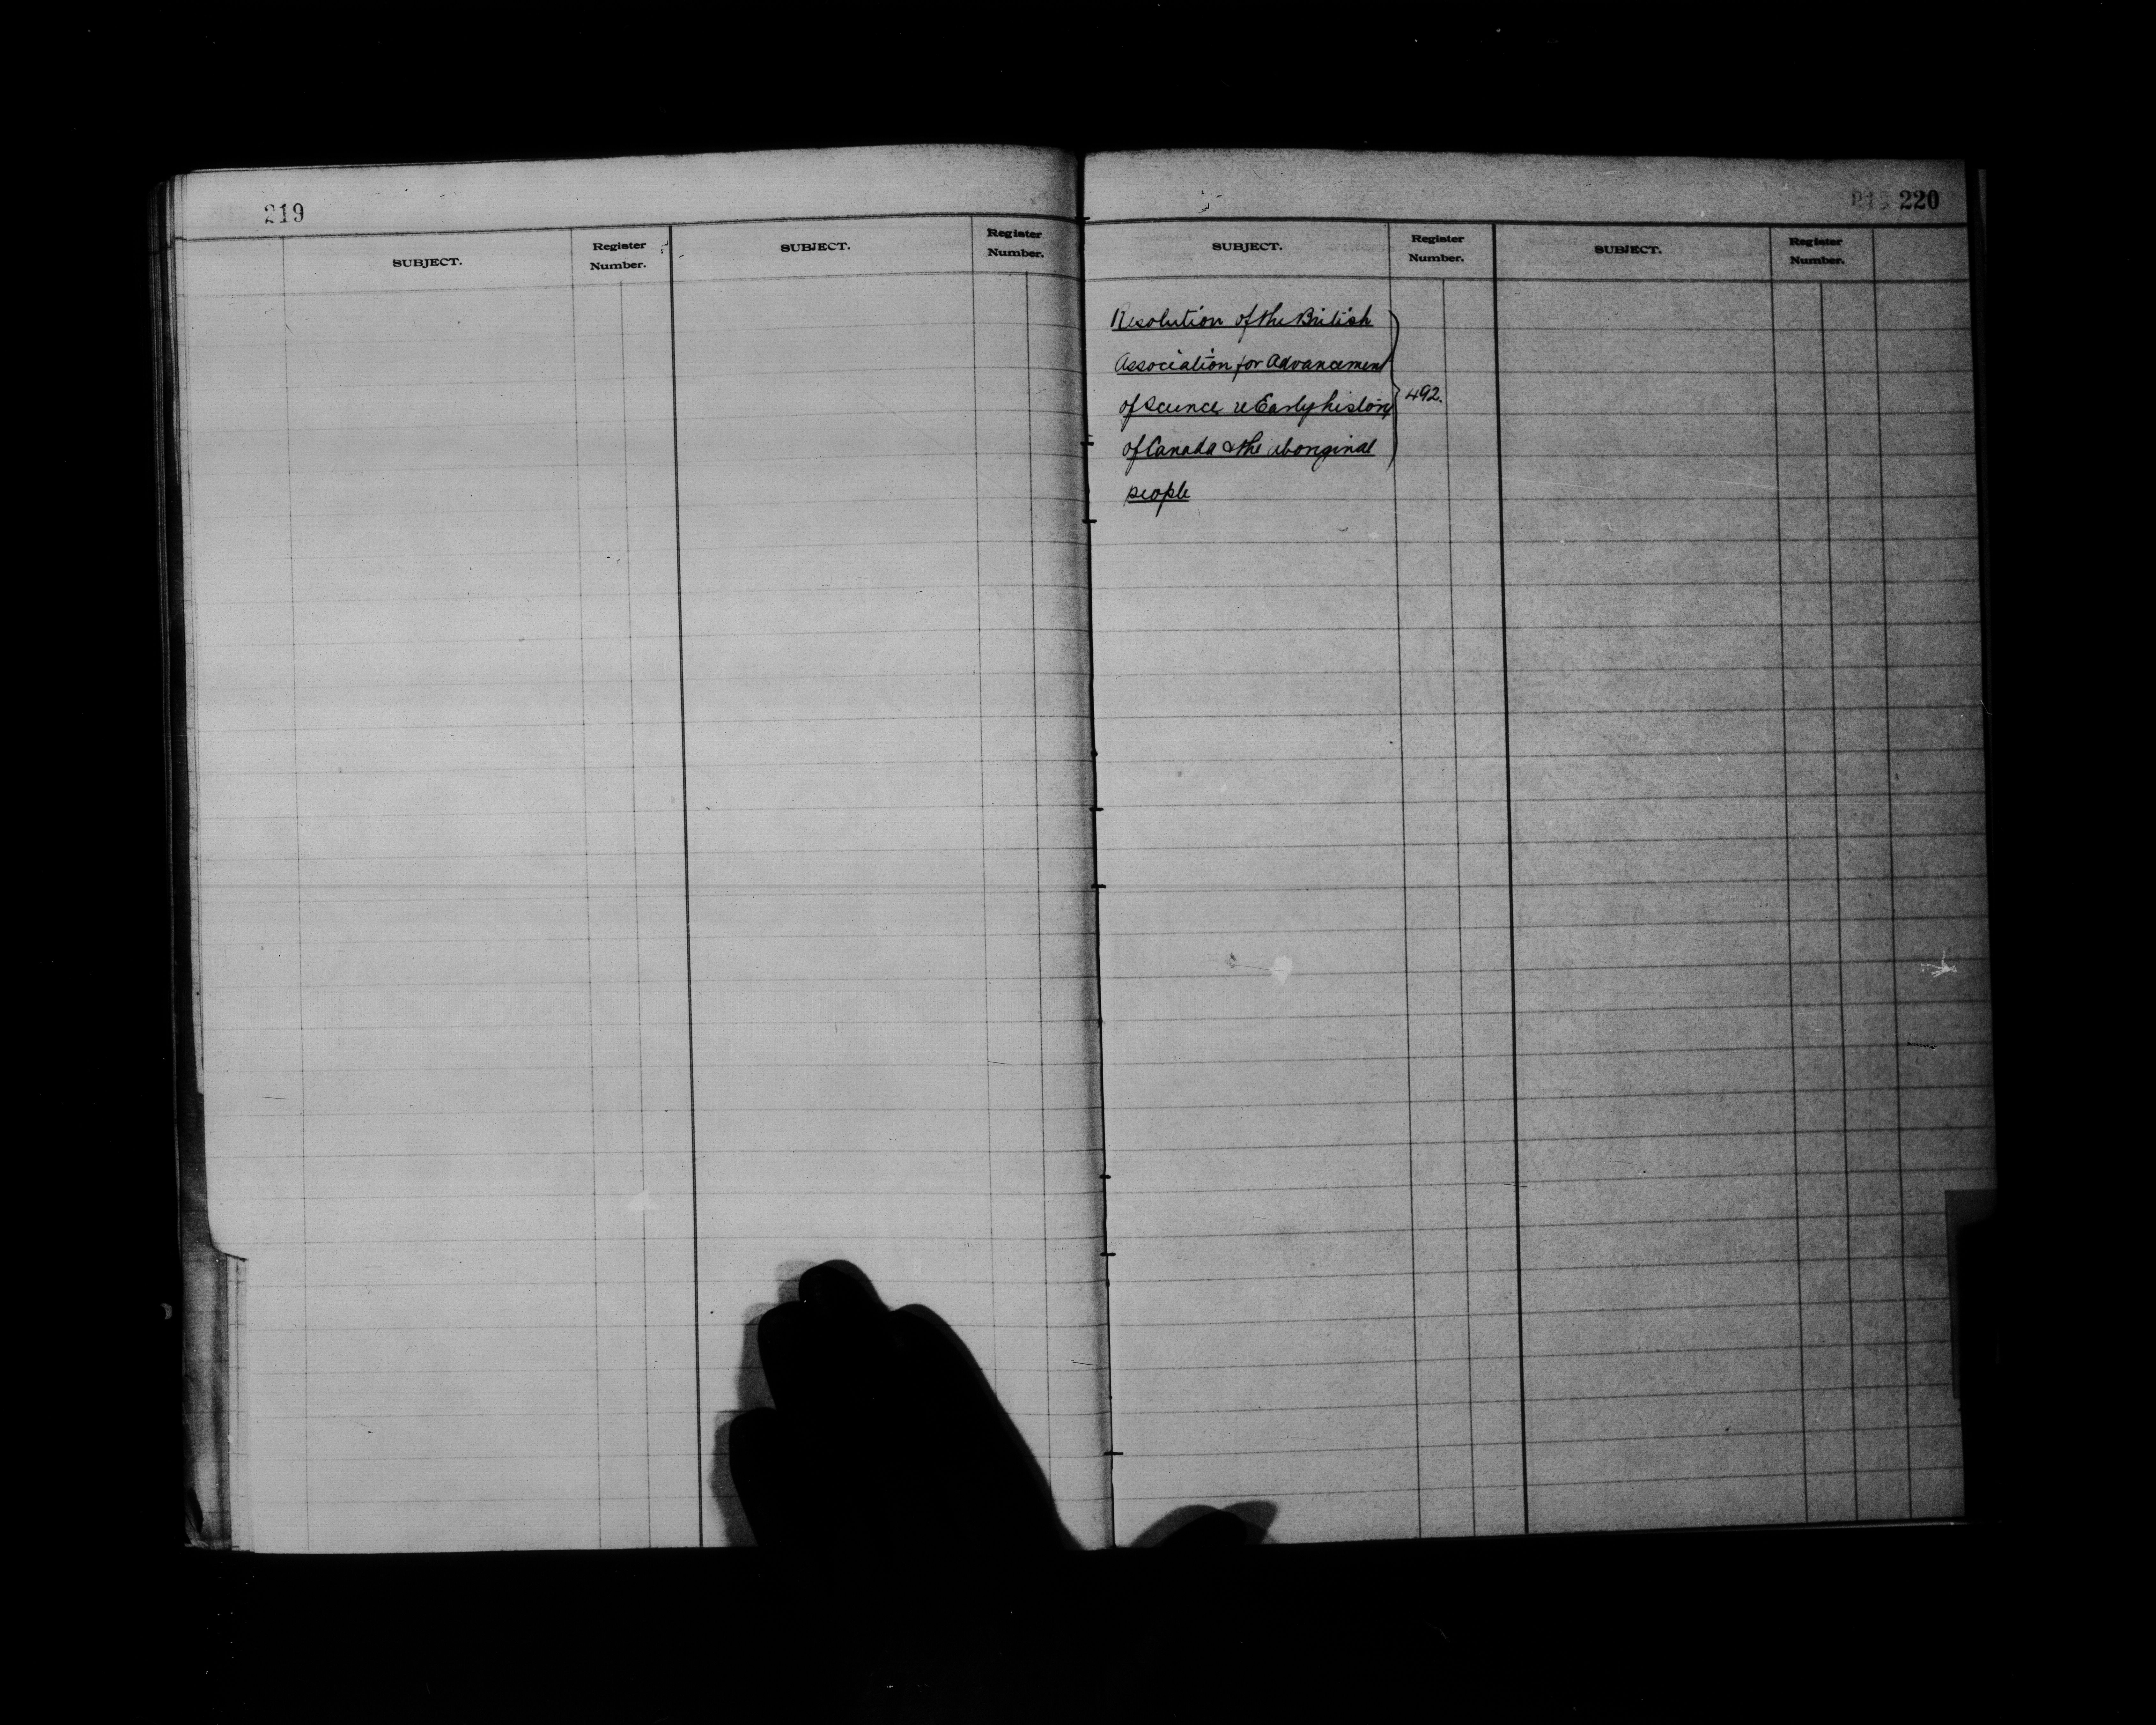 219
SUBJECT. Register Number. SUBJECT. Register Number.
220
SUBJECT. Register Number. SUBJECT. Register Number.
Resolution of the British
Association for Advancement
of Science re Early history
of Canada & the aboriginal
people
492.